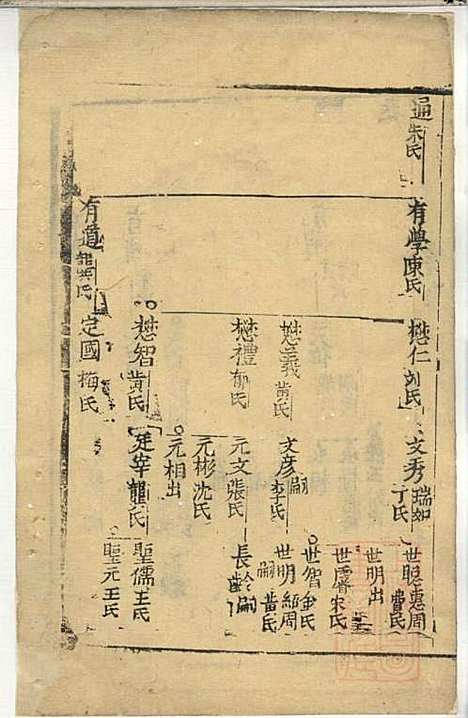 通 朱氏
有學 陳氏
懋仁 刘氏
文秀 瑞如 丁氏
世聰 惠周 費氏
世明 出
世譍 宋氏
世智 金氏
懋義 黃氏
文彦 嗣 李氏
世明 繼周 嗣 黃氏
懋禮 郁氏
元文 張氏
長齡 嗣
元彬 沈氏
元相 出
懋智 黃氏
廷宰 龍氏
聖儒 王氏
聖元 王氏
有道 龔氏
定國 梅氏